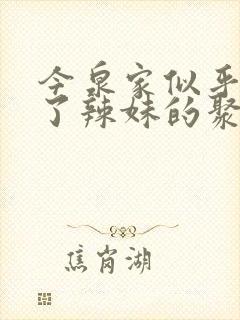 今泉家似乎
了辣妹的聚
焦岗湖